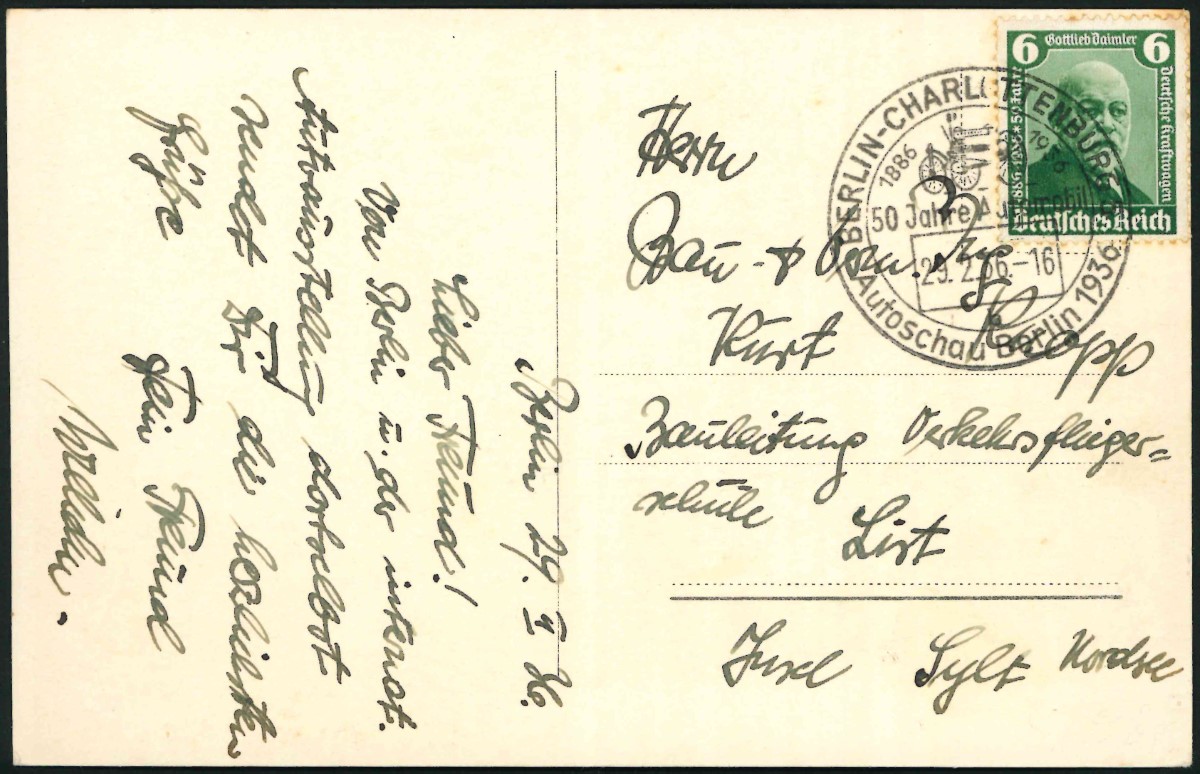 Berlin 29. II 36.
Lieber Freund!
Von Berlin u. der internat.
Autoausstellung dortselbst
sendet Dir die herzlichsten
Grüße
Dein Freund
Herrn
Bau - & Ing.
Kurt Kopp
Bauleitung Verkehrsflieger=
schule
List
Insel Sylt Nordsee
6 Gottlieb Daimler 6
Deutsche Kraftwagen
1886-1936 * 50 Jahre
Deutsches Reich
BERLIN-CHARLOTTENBURG
1886 1936
50 Jahre Automobil
29.2.36.-16
Autoschau Berlin 1936